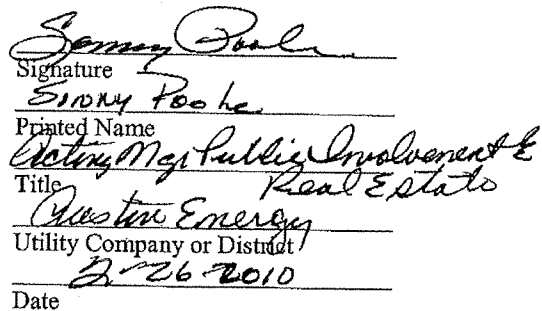 Sonny Poole
Signature
Sonny Poole
Printed Name
Acting Mgr Public Involvement &
Title Real Estate
Austin Energy
Utility Company or District
2-26-2010
Date